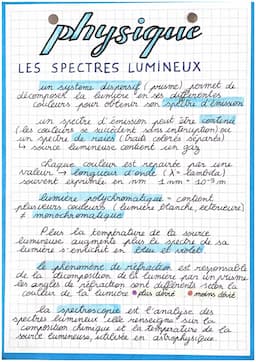 physique
LES SPECTRES LUMINEUX
un système dispersif (prisme) permet de
décomposer la lumière en ses différentes
couleurs pour obtenir son spectre d'émission
un spectre d'émission peut être continu
(les couleurs se succèdent sans interruption) ou
un spectre de raies (traits colorés séparés)
↳ source lumineuse contient un gaz
chaque couleur est repérée par une
valeur → longueur d'onde (λ = lambda)
souvent exprimée en nm 1 nm = 10⁻⁹ m
lumière polychromatique = contient
plusieurs couleurs (lumière blanche, extérieure)
≠ monochromatique
Plus la température de la source
lumineuse augmente plus le spectre de sa
lumière s'enrichit en bleu et violet
le phénomène de réfraction est responsable
de la décomposition de la lumière par un prisme
les angles de réfraction sont différents selon la
couleur de la lumière plus dévié moins dévié
la spectroscopie est l'analyse des
spectres lumineux elle renseigne sur la
composition chimique et la température de la
source lumineuse, utilisée en astrophysique.